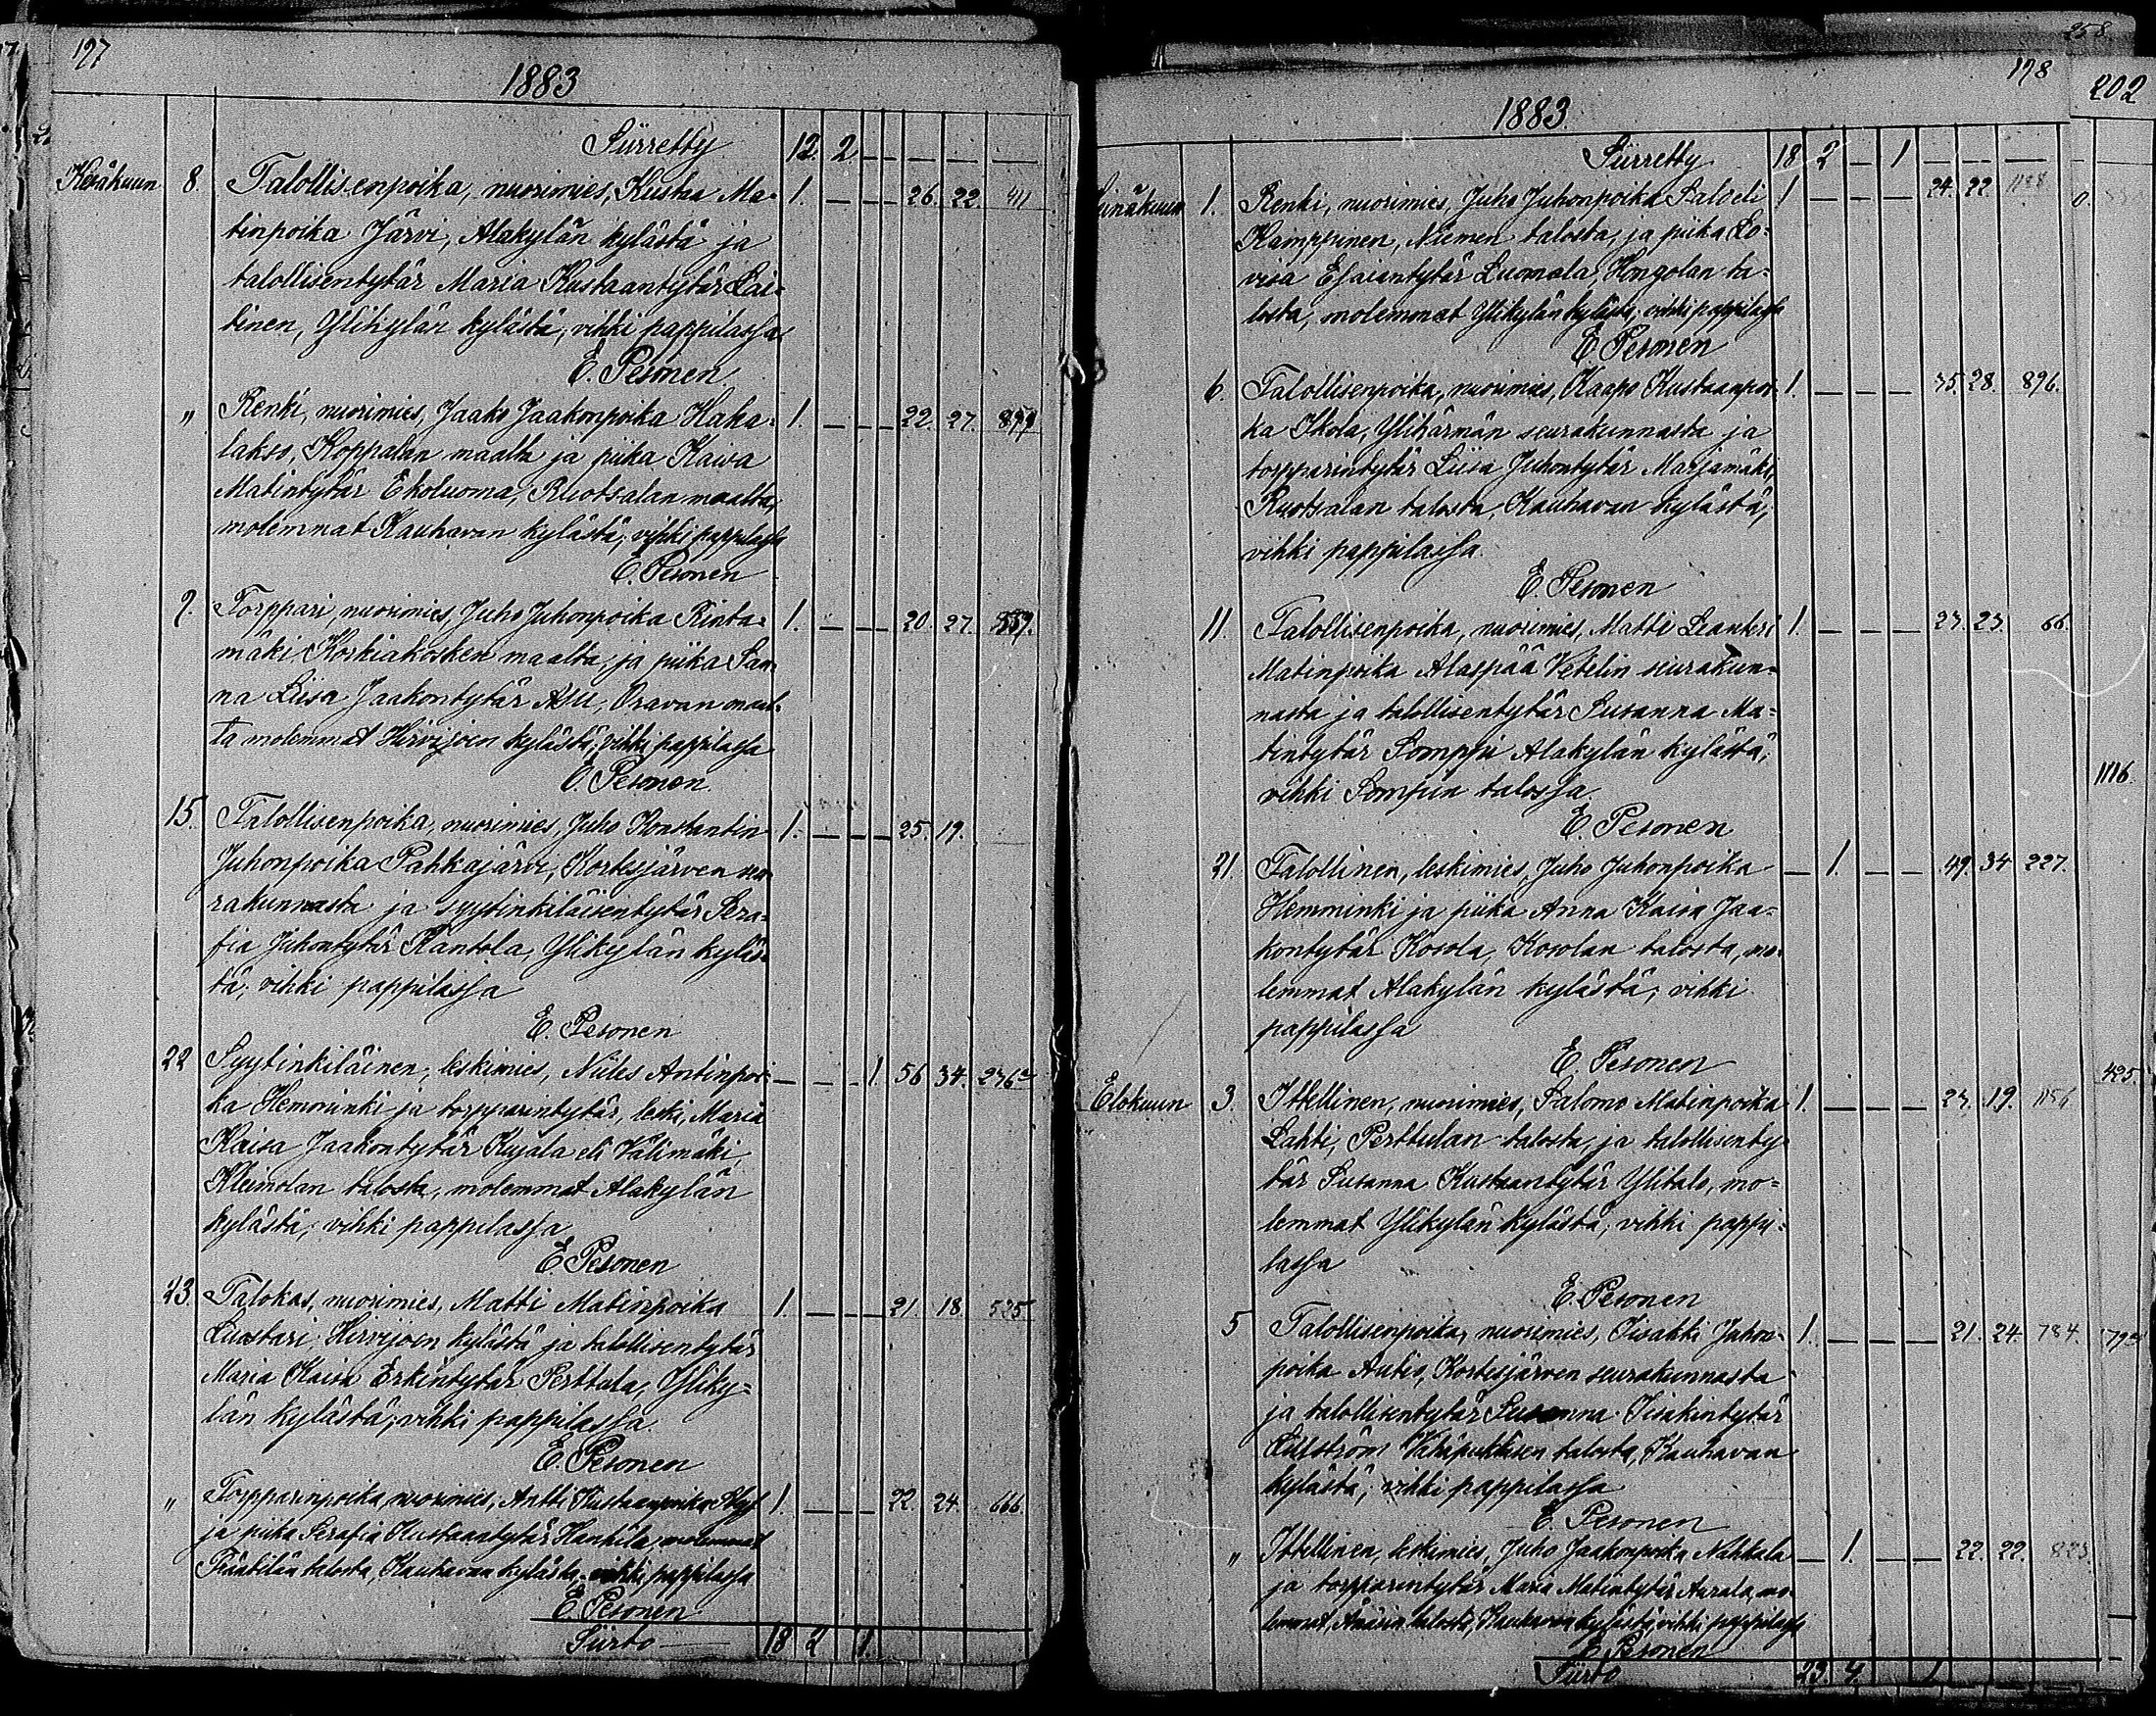 197
1883
Siirretty 12. 2. — — — — —
Kesäkuun 8. Talollisenpoika, nuorimies, Kustaa Ma- 1. — — — 26. 22. 411
tinpoika Järvi, Alakylän kylästä ja
talollisentytär Maria Kustaantytär Lai-
tinen, Ylikylän kylästä; vihki pappilassa
E. Pesonen.
" Renki, nuorimies, Jaako Jaakonpoika Haka- 1. — — — 22. 27.
lakso, Koppalan maalta ja piika Kaisa
Matintytär Ekoluoma, Ruotsalan maalta,
molemmat Kauhavan kylästä; vihki pappilassa
E. Pesonen
9. Torppari, nuorimies, Juho Juhonpoika Rinta- 1. — — — 20. 27.
mäki, Koskiakosken maalta, ja piika San-
na Liisa Jaakontytär, Oravan maal-
ta molemmat Hirvijoen kylästä; vihki pappilassa
E. Pesonen.
15. Talollisenpoika, nuorimies, Juho Konstantin 1. — — — 25. 19.
Juhonpoika Pahkajärvi, Kortesjärven seu-
rakunnasta ja syytinkiläisentytär Sera-
fia Juhontytär Rantola, Ylikylän kyläs-
tä; vihki pappilassa
E. Pesonen
22 Syytinkiläinen, leskimies, Niiles Antinpoi- — — — 1. 56 34.
ka Hemminki ja torpparintytär, leski, Maria
Kaisa Jaakontytär Kujala eli Välimäki,
Kleimolan talosta, molemmat Alakylän
kylästä; vihki pappilassa
E. Pesonen
23. Talokas, nuorimies, Matti Matinpoika 1. — — — 21. 18. 525
Luostari, Hirvijoen kylästä ja talollisentytär
Maria Kaisa Erkintytär Perttula, Yliky-
län kylästä; vihki pappilassa.
E. Pesonen
" Torpparinpoika, nuorimies, Antti Kustaanpoika 1. — — — 22. 24. 666.
ja piika Serafia Kustaantytär Hankila, molemmat
talosta, Kauhavan kylästä, vihki pappilassa
E. Pesonen
Siirto — 18 2 1.
258.
198
202
1883.
Siirretty 18 2 — 1 — — —
Heinäkuun 1. Renki, nuorimies, Juho Juhonpoika Salo eli 1 — — — 24. 22. 1128
Kamppinen, Niemen talosta, ja piika Lo-
visa Esaiantytär Luomala, Hongolan ta-
losta, molemmat Ylikylän kylästä; vihki pappilassa
E Pesonen
6. Talollisenpoika, nuorimies, Kaapo Kustaanpoi- 1. — — — 35. 28. 896.
ka Ikola, Ylihärmän seurakunnasta ja
torpparintytär Liisa Juhontytär Marjamäki,
Ruotsalan talosta, Kauhavan kylästä;
vihki pappilassa.
E Pesonen
11. Talollisenpoika, nuorimies, Matti Leanteri 1. — — — 23. 23. 66.
Matinpoika Alaspää Vetelin seurakun-
nasta ja talollisentytär Susanna Ma-
tintytär Somppi Alakylän kylästä;
vihki Sompin talossa
E. Pesonen
1116.
21. Talollinen, leskimies, Juho Juhonpoika — 1. — — 49. 34 227.
Hemminki ja piika Anna Kaisa Jaa-
kontytär Kosola, Kosolan talosta, mo-
lemmat Alakylän kylästä; vihki
pappilassa
E. Pesonen
425.
Elokuun 3. Itellinen, nuorimies, Salomo Matinpoika 1. — — — 23. 19. 1156
Lahti, Perttulan talosta, ja talollisenty-
tär Susanna Kustaantytär Ylitalo, mo-
lemmat Ylikylän kylästä; vihki pappi-
lassa
E. Pesonen
5 Talollisenpoika, nuorimies, Iisakki Juhon- 1. — — — 21. 24. 784.
poika Autio, Kortesjärven seurakunnasta
ja talollisentytär Susanna Iisakintytär
talosta, Kauhavan
kylästä; vihki pappilassa
E. Pesonen
" Itellinen, leskimies, Juho Jaakonpoika Nahkala — 1. — — 22. 22. 823.
ja torpparintytär Maria Matintytär Aurala, mo-
lemmat, talosta, Kauhavan kylästä; vihki pappilassa
E Pesonen
Siirto 23. 4. 1